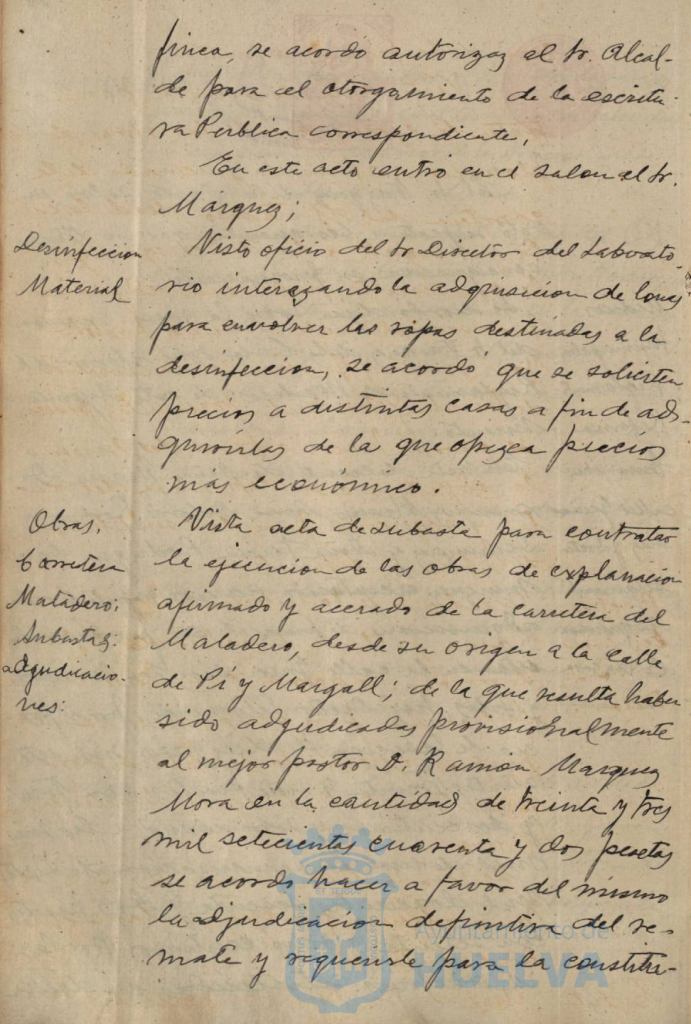 finca, se acordó autorizar al Sr. Alcal-
de para el otorgamiento de la escritu-
ra Publica correspondiente,
En este acto entró en el salon el Sr.
Márquez;
Desinfeccion
Material
Visto oficio del Sr Director del Laborato-
rio interezando la adquisicion de lonas
para envolver las ropas destinadas a la
desinfeccion, se acordó que se soliciten
precios a distintas casas a fin de ad-
quirirlas de la que ofrezca precios
más económico.
Obras.
Carretera
Matadero;
Subastas;
adjudicacio-
nes:
Vista acta de subasta para contratar
la ejecucion de las obras de explanacion
afirmado y acerado de la carretera del
Matadero, desde su origen a la calle
de Pí y Margall; de la que resulta haber
sido adjudicadas provisionalmente
al mejor postor D. Ramón Marquez
Mora en la cantidad de treinta y tres
mil setecientas cuarenta y dos pesetas
se acordó hacer a favor del mismo
la adjudicacion definitiva del re-
mate y requerirle para la constitu-
Ayuntamiento de
HUELVA